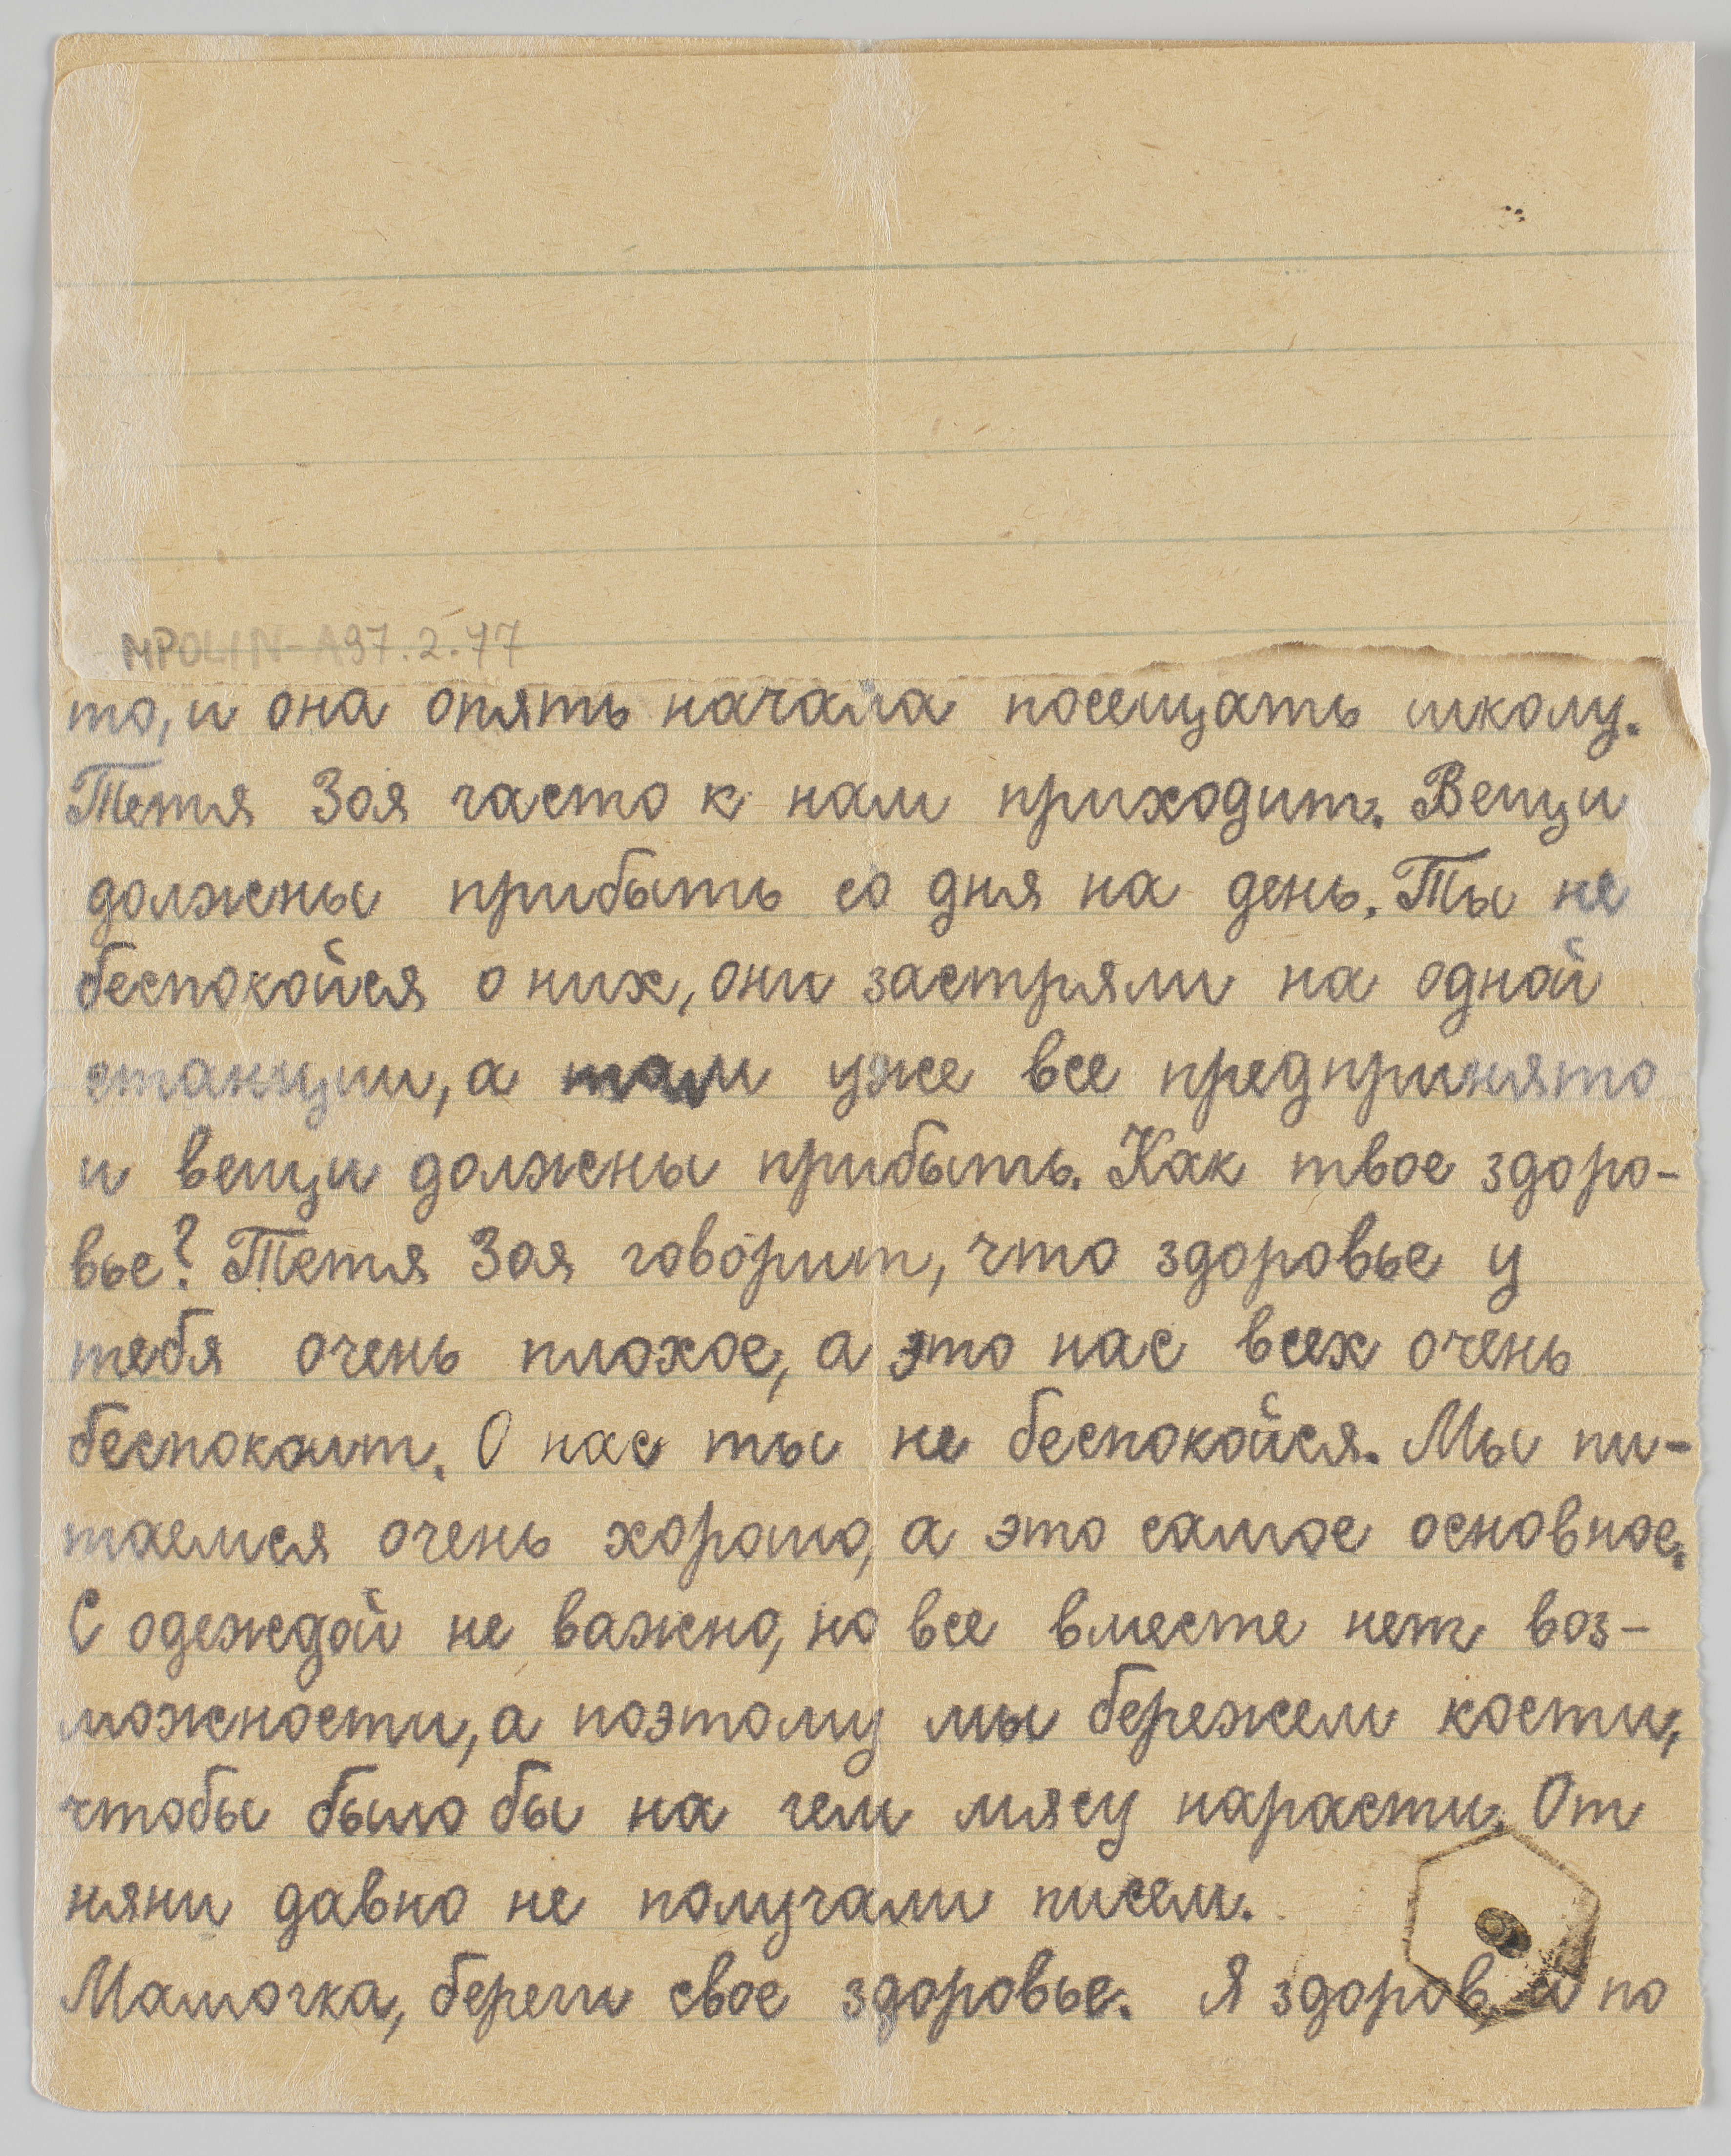 MPOLIN-A97.2.77
то, и она опять начала посещать школу.
Тетя Зоя часто к нам приходит. Вещи
должны прибыть со дня на день. Ты не
беспокойся о них, они застряли на одной
станции, а там уже все предпринято
и вещи должны прибыть. Как твое здоро-
вье? Тетя Зоя говорит, что здоровье у
тебя очень плохое, а это нас всех очень
беспокоит. О нас ты не беспокойся. Мы пи-
таемся очень хорошо, а это самое основное.
С одеждой не важно, но все вместе нет воз-
можности, а поэтому мы бережем кости,
чтобы было бы на чем мясу нарасти. От
няни давно не получали писем.
Мамочка, береги свое здоровье. Я здоров, а по